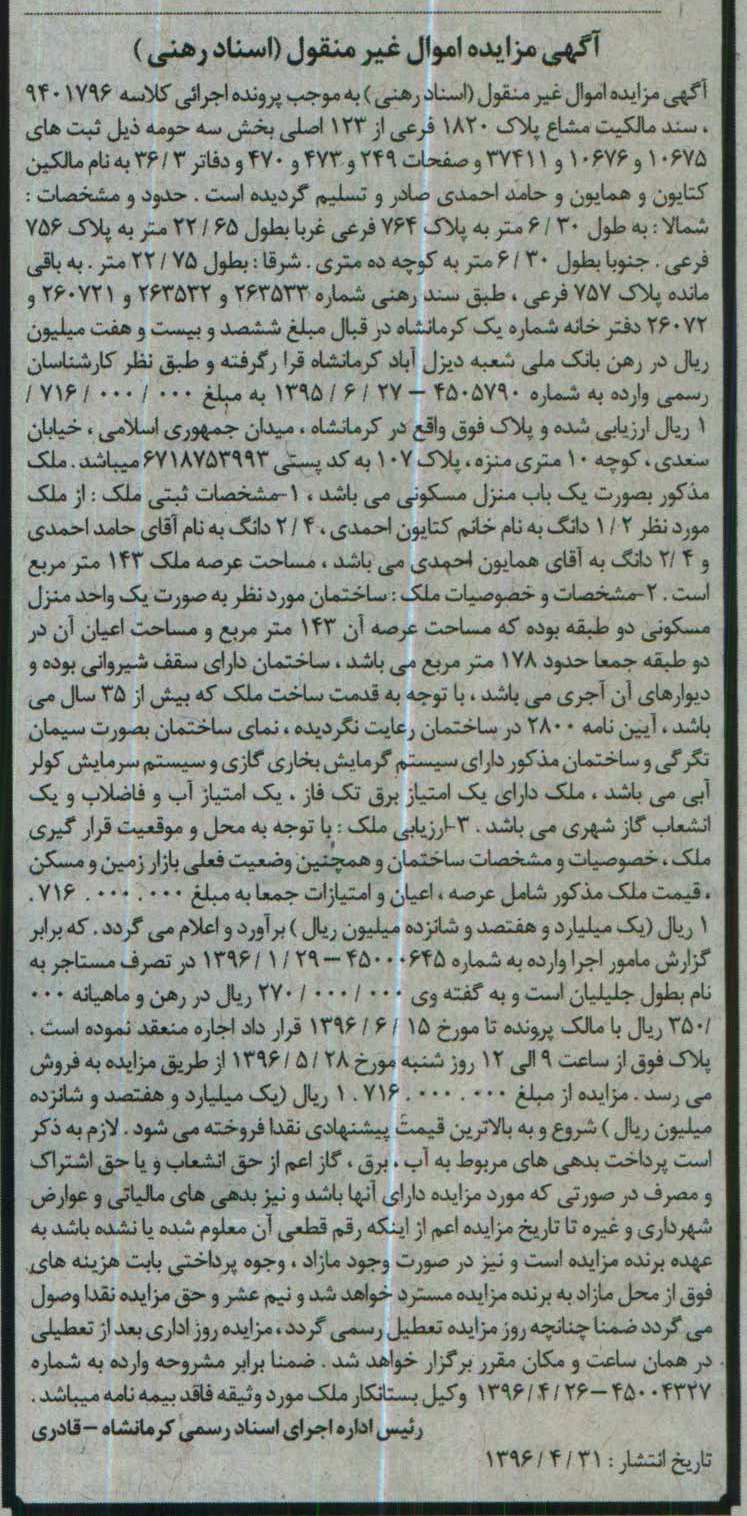 آگهی مزایده اموال غیر منقول (اسناد رهنی)
آگهی مزایده اموال غیر منقول (اسناد رهنی) به موجب پرونده اجرائی کلاسه ۹۴۰۱۷۹۶
، سند مالکیت مشاع پلاک ۱۸۲۰ فرعی از ۱۲۳ اصلی بخش سه حومه ذیل ثبت های
۱۰۶۷۵ و ۱۰۶۷۶ و ۳۷۴۱۱ و صفحات ۲۴۹ و ۴۷۳ و ۴۷۰ و دفاتر ۳ / ۳۶ به نام مالکین
کتایون و همایون و حامد احمدی صادر و تسلیم گردیده است . حدود و مشخصات :
شمالا : به طول ۳۰ / ۶ متر به پلاک ۷۶۴ فرعی غربا بطول ۶۵ / ۲۲ متر به پلاک ۷۵۶
فرعی . جنوبا بطول ۳۰ / ۶ متر به کوچه ده متری . شرقا : بطول ۷۵ / ۲۲ متر . به باقی
مانده پلاک ۷۵۷ فرعی ، طبق سند رهنی شماره ۲۶۳۵۳۳ و ۲۶۳۵۳۲ و ۲۶۰۷۲۱ و
۲۶۰۷۲ دفتر خانه شماره یک کرمانشاه در قبال مبلغ ششصد و بیست و هفت میلیون
ریال در رهن بانک ملی شعبه دیزل آباد کرمانشاه قرا رگرفته و طبق نظر کارشناسان
رسمی وارده به شماره ۴۵۰۵۷۹۰ – ۲۷ / ۶ / ۱۳۹۵ به مبلغ ۰۰۰ / ۰۰۰ / ۷۱۶ /
۱ ریال ارزیابی شده و پلاک فوق واقع در کرمانشاه ، میدان جمهوری اسلامی ، خیابان
سعدی ، کوچه ۱۰ متری منزه ، پلاک ۱۰۷ به کد پستی ۶۷۱۸۷۵۳۹۹۳ میباشد . ملک
مذکور بصورت یک باب منزل مسکونی می باشد ، ۱-مشخصات ثبتی ملک : از ملک
مورد نظر ۲ / ۱ دانگ به نام خانم کتایون احمدی ، ۴ / ۲ دانگ به نام آقای حامد احمدی
و ۴ / ۲ دانگ به آقای همایون احمدی می باشد ، مساحت عرصه ملک ۱۴۳ متر مربع
است . ۲-مشخصات و خصوصیات ملک : ساختمان مورد نظر به صورت یک واحد منزل
مسکونی دو طبقه بوده که مساحت عرصه آن ۱۴۳ متر مربع و مساحت اعیان آن در
دو طبقه جمعا حدود ۱۷۸ متر مربع می باشد ، ساختمان دارای سقف شیروانی بوده و
دیوارهای آن آجری می باشد ، با توجه به قدمت ساخت ملک که بیش از ۳۵ سال می
باشد ، آیین نامه ۲۸۰۰ در ساختمان رعایت نگردیده ، نمای ساختمان بصورت سیمان
تگرگی و ساختمان مذکور دارای سیستم گرمایش بخاری گازی و سیستم سرمایش کولر
آبی می باشد ، ملک دارای یک امتیاز برق تک فاز . یک امتیاز آب و فاضلاب و یک
انشعاب گاز شهری می باشد . ۳-ارزیابی ملک : با توجه به محل و موقعیت قرار گیری
ملک ، خصوصیات و مشخصات ساختمان و همچنین وضعیت فعلی بازار زمین و مسکن
، قیمت ملک مذکور شامل عرصه ، اعیان و امتیازات جمعا به مبلغ ۰۰۰ . ۰۰۰ . ۷۱۶ .
۱ ریال (یک میلیارد و هفتصد و شانزده میلیون ریال ) برآورد و اعلام می گردد . که برابر
گزارش مامور اجرا وارده به شماره ۴۵۰۰۰۶۴۵ – ۲۹ / ۱ / ۱۳۹۶ در تصرف مستاجر به
نام بطول جلیلیان است و به گفته وی ۰۰۰ / ۰۰۰ / ۲۷۰ ریال در رهن و ماهیانه ۰۰۰
/۳۵۰ ریال با مالک پرونده تا مورخ ۱۵ / ۶ / ۱۳۹۶ قرار داد اجاره منعقد نموده است .
پلاک فوق از ساعت ۹ الی ۱۲ روز شنبه مورخ ۲۸ / ۵ / ۱۳۹۶ از طریق مزایده به فروش
می رسد . مزایده از مبلغ ۰۰۰ . ۰۰۰ . ۷۱۶ . ۱ ریال (یک میلیارد و هفتصد و شانزده
میلیون ریال ) شروع و به بالاترین قیمت پیشنهادی نقدا فروخته می شود . لازم به ذکر
است پرداخت بدهی های مربوط به آب ، برق ، گاز اعم از حق انشعاب و یا حق اشتراک
و مصرف در صورتی که مورد مزایده دارای آنها باشد و نیز بدهی های مالیاتی و عوارض
شهرداری و غیره تا تاریخ مزایده اعم از اینکه رقم قطعی آن معلوم شده یا نشده باشد به
عهده برنده مزایده است و نیز در صورت وجود مازاد ، وجوه پرداختی بابت هزینه های
فوق از محل مازاد به برنده مزایده مسترد خواهد شد و نیم عشر و حق مزایده نقدا وصول
می گردد ضمنا چنانچه روز مزایده تعطیل رسمی گردد ، مزایده روز اداری بعد از تعطیلی
در همان ساعت و مکان مقرر برگزار خواهد شد . ضمنا برابر مشروحه وارده به شماره
۴۵۰۰۴۳۲۷ – ۲۶ / ۴ / ۱۳۹۶ وکیل بستانکار ملک مورد وثیقه فاقد بیمه نامه میباشد .
رئیس اداره اجرای اسناد رسمی کرمانشاه – قادری
تاریخ انتشار : ۳۱ / ۴ / ۱۳۹۶